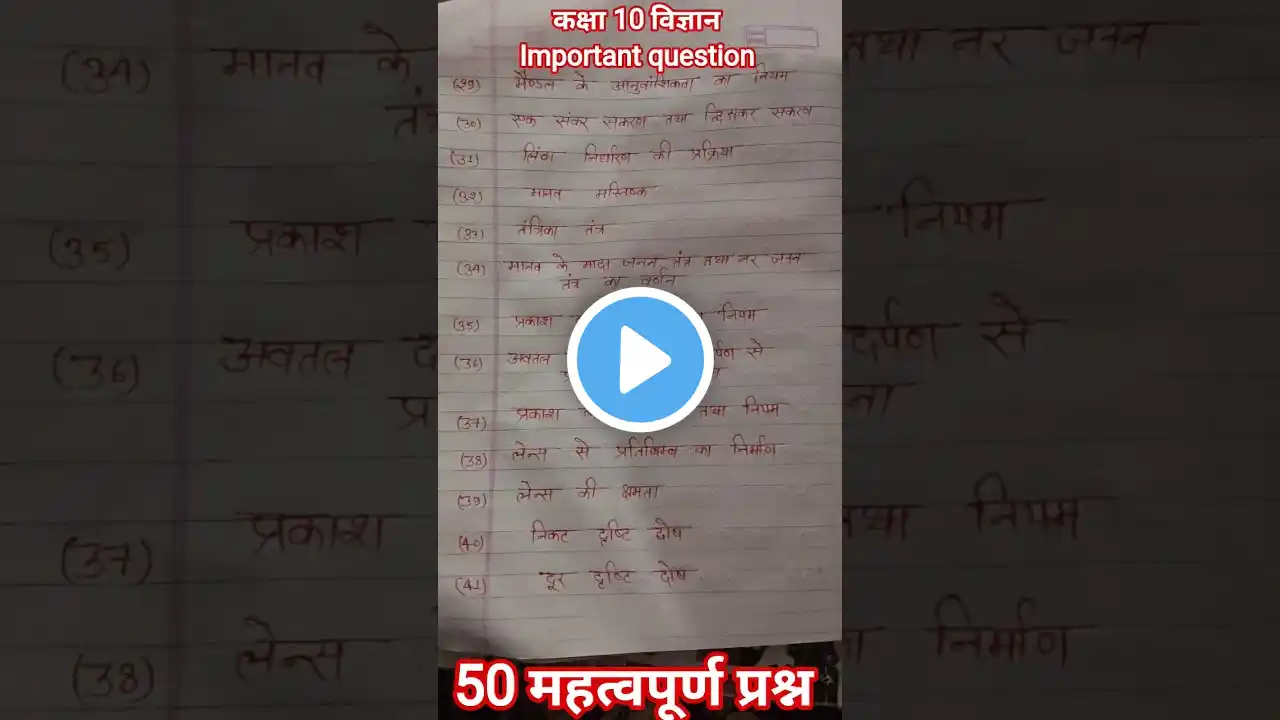 कक्षा 10 विज्ञान
Important question
(29) मैण्डल के आनुवांशिकता का नियम
(30) एक संकर संकरण तथा संकरण
(31) लिंग निर्धारण की प्रक्रिया
(32) मानव मस्तिष्क
(33) तंत्रिका तंत्र
(34) मानव के मादा जनन तंत्र तथा नर जनन
तंत्र का वर्णन
(35) प्रकाश नियम
(36) अवतल दर्पण से
(37) प्रकाश तथा नियम
(38) लेन्स से प्रतिबिम्ब का निर्माण
(39) लेन्स की क्षमता
(40) निकट दृष्टि दोष
(41) दूर दृष्टि दोष
50 महत्वपूर्ण प्रश्न